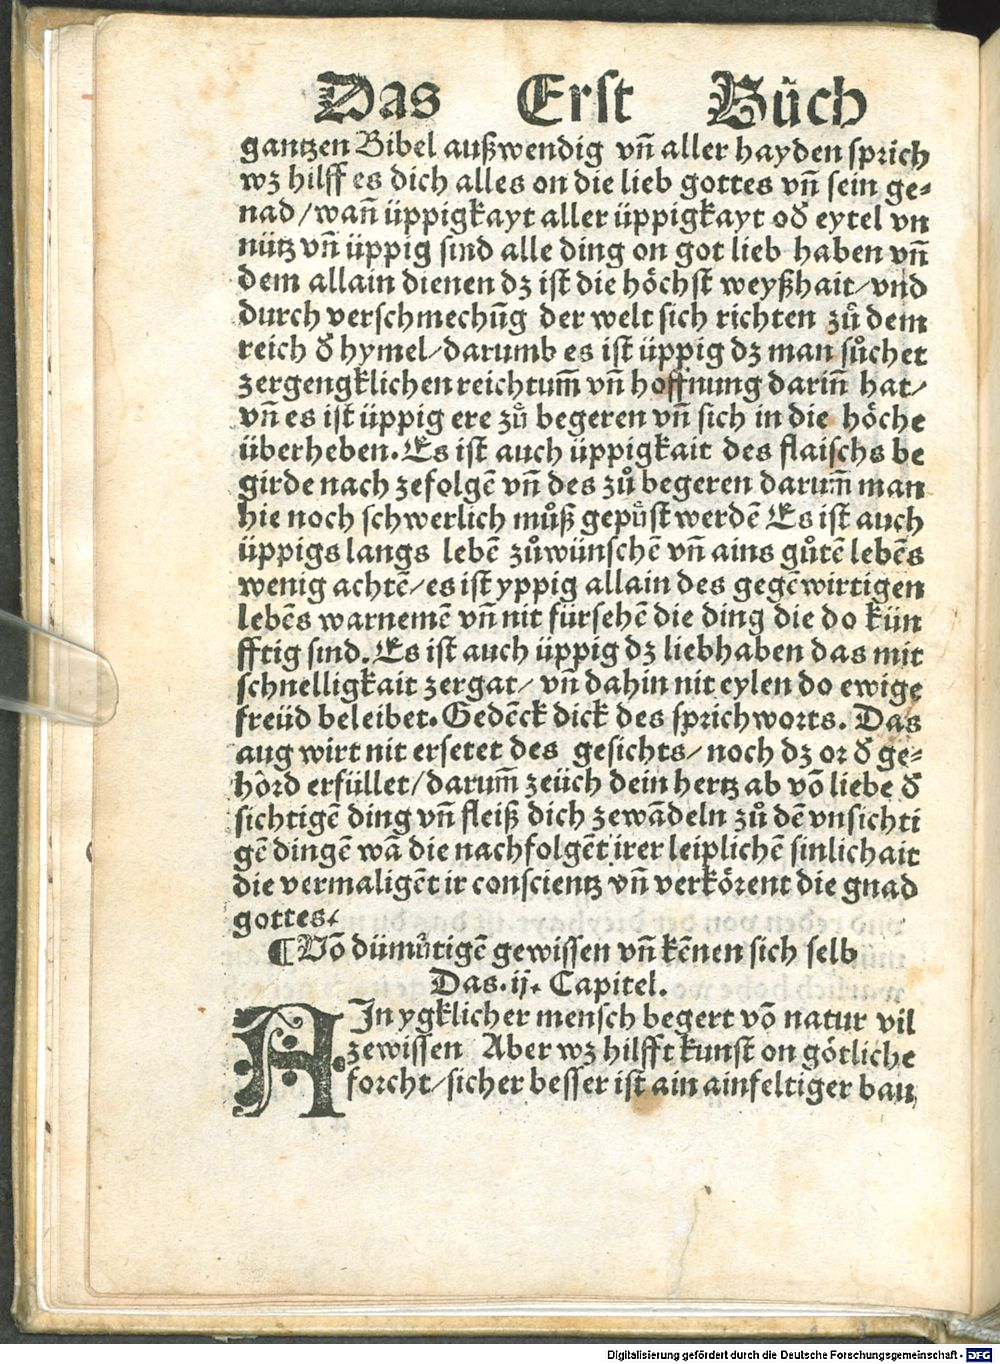 Das Erst Bůch
gantzen Bibel außwendig vñ aller hayden sprich
wz hilff es dich alles on die lieb gottes vñ sein ge⸗
nad/wañ üppigkayt aller üppigkayt oď eytel vn
nütz vñ üppig sind alle ding on got lieb haben vñ
dem allain dienen dz ist die höchst weyßhait/vnd
durch verschmechũg der welt sich richten zů dem
reich ď hymel/darumb es ist üppig dz man sůchet
zergengklichen reichtum̃ vñ hoffnung dariñ hat/
vñ es ist üppig ere zů begeren vñ sich in die höche
überheben. Es ist auch üppigkait des flaischs be
girde nach zefolgẽ vñ des zů begeren darum̃ man
hie noch schwerlich můß gepůst werdẽ Es ist auch
üppigs langs lebẽ zůwünschẽ vñ ains gůtẽ lebẽs
wenig achtẽ/es ist yppig allain des gegẽwirtigen
lebẽs warnemẽ vñ nit fürsehẽ die ding die do kün
fftig sind. Es ist auch üppig dz liebhaben das mit
schnelligkait zergat/ vñ dahin nit eylen do ewige
freüd beleibet. Gedẽck dick des sprichworts. Das
aug wirt nit ersetet des gesichts/ noch dz or ď ge⸗
hörd erfüllet/darum̃ zeüch dein hertz ab võ liebe ď
sichtigẽ ding vñ fleiß dich zewãdeln zů dẽ vnsichti
gẽ dingẽ wã die nachfolgẽt irer leiplichẽ sinlichait
die vermaligẽt ir conscientz vñ verkörent die gnad
gottes.
¶Võ dümůtigẽ gewissen vñ kẽnen sich selb
Das.ij. Capitel.
AIn ygklicher mensch begert võ natur vil
zewissen Aber wz hilfft kunst on götliche
forcht/sicher besser ist ain ainfeltiger bau
Digitalisierung gefördert durch die Deutsche Forschungsgemeinschaft - DFG